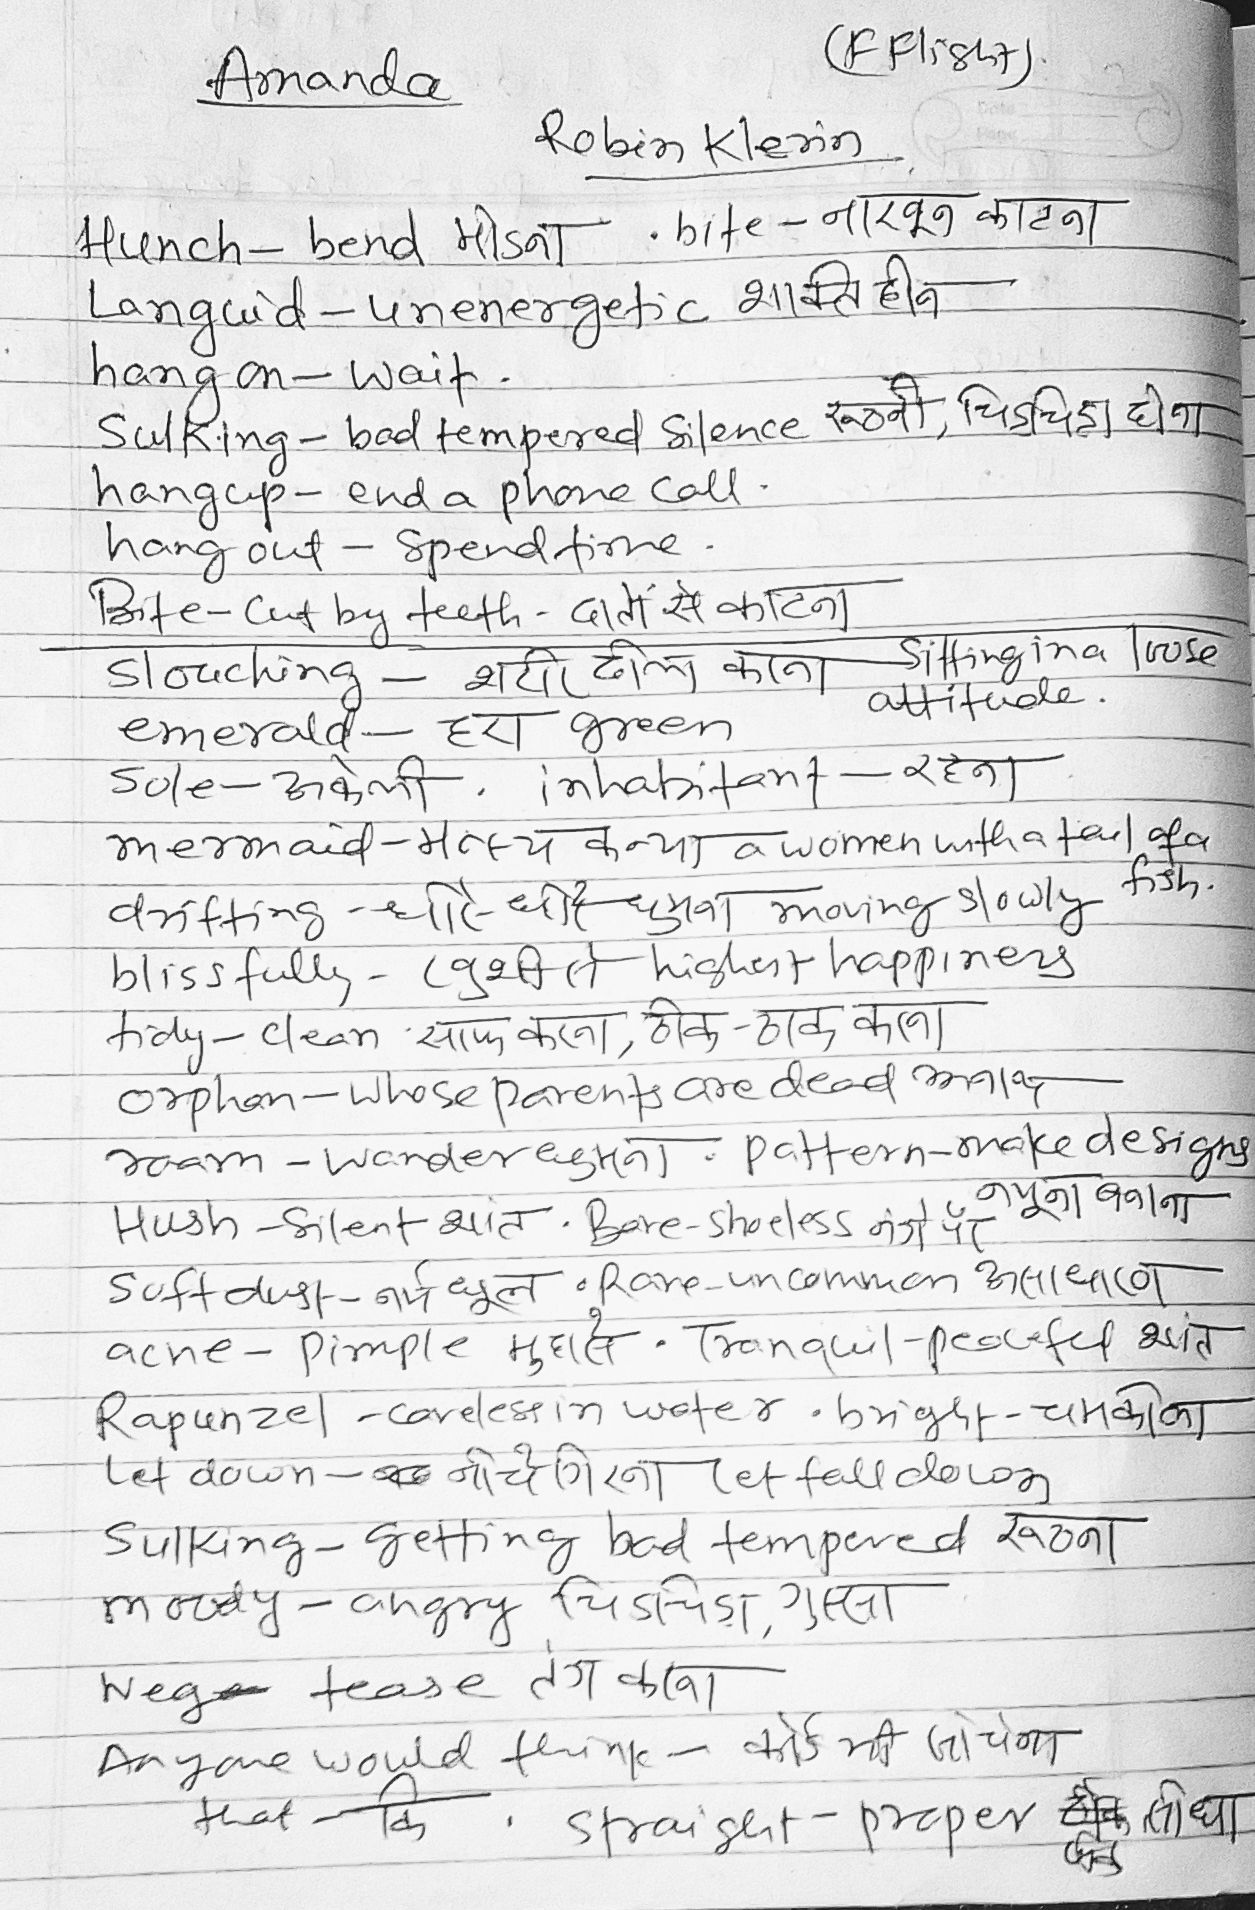 (F Flight)
Amanda
Robin Klerin
Hunch – bend मोडना . bite – नाखून काटना
Languid – unenergetic शक्ति हीन
hang on – wait.
Sulking – bad tempered silence रूठनी, चिडचिडा होना
hang up – end a phone call.
hang out – Spend time.
Bite – Cut by teeth - दातों से काटना
Slouching – शरीर ढीला करना Sitting in a loose
attitude.
emerald – हरा green
Sole – अकेली . inhabitant – रहना
mermaid – मत्स्य कन्या a women with a tail of a
fish.
drifting - धीरे धीरे घुमना moving slowly
blissfully - खुशी से highest happiness
tidy – clean साफ करना, ठीक-ठाक करना
orphan – whose parents are dead अनाथ
roam – wander घुमना . pattern – make designs
नमूना बनाना
Hush – Silent शांत . Bare – shoeless नंगे पैर
Soft dust – नर्म धूल . Rare – uncommon असाधारण
acne – Pimple मुहासे . Tranquil – peaceful शांत
Rapunzel – careless in water . bright – चमकीला
let down – नीचे गिरना let fall down
Sulking – getting bad tempered रूठना
moody – angry चिडचिडा, गुस्सा
Neg tease तंग करना
Anyone would think – कोई भी सोचेगा
that – कि . straight – proper सीधा